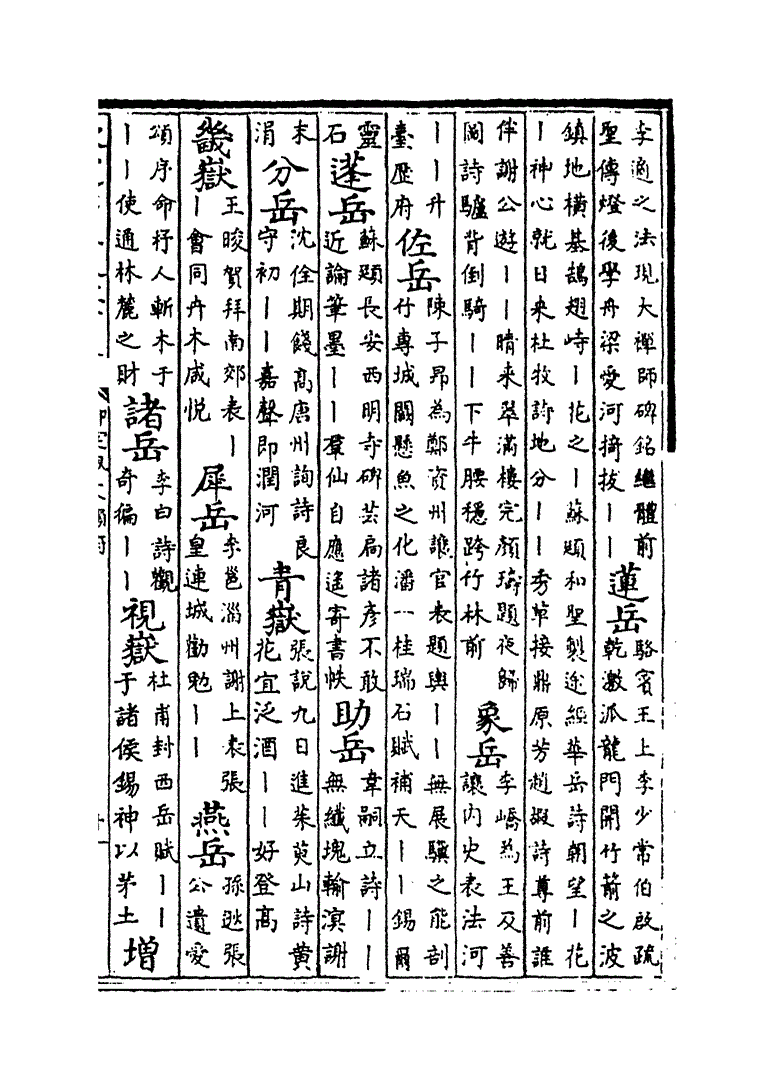 李適之法現大禪師碑銘繼體前
聖傳燈後學舟梁愛河掎拔丨丨
蓮岳
駱賓王上李少常伯啟疏
乾激派龍門開竹箭之波
鎮地橫基鵠翅峙丨花之丨蘇頲和聖製途經華岳詩朝望丨花
丨神心就日來杜牧詩地分丨丨秀草接鼎原芳趙嘏詩尊前誰
伴謝公遊丨丨晴來翠滿樓完顏璹題夜歸
圖詩驢背倒騎丨丨下牛腰穩跨竹林前
象岳
李嶠為王及善
讓內史表法河
丨丨升
臺歷府
佐岳
陳子昂為鄭資州讓官表題輿丨丨無展驥之能剖
竹專城闕懸魚之化潘一桂瑞石賦補天丨丨錫爾
靈
石
蓬岳
蘇頲長安西明寺碑芸扃諸彥不敢
近論筆墨丨丨羣仙自應遙寄書帙
助岳
韋嗣立詩丨丨
無纖塊輸溟謝
末
涓
分岳
沈佺期餞高唐州詢詩良
守初丨丨嘉聲即潤河
青嶽
張說九日進茱萸山詩黃
花宜泛酒丨丨好登高
畿嶽
王晙賀拜南郊表丨
丨會同卉木咸悅
犀岳
李邕淄州謝上表張
皇連城勸勉丨丨
燕岳
孫逖張
公遺愛
頌序命杼人斬木于
丨丨使通林麓之財
諸岳
李白詩觀
奇徧丨丨
視嶽
杜甫封西岳賦丨丨
于諸侯錫神以茅土
增